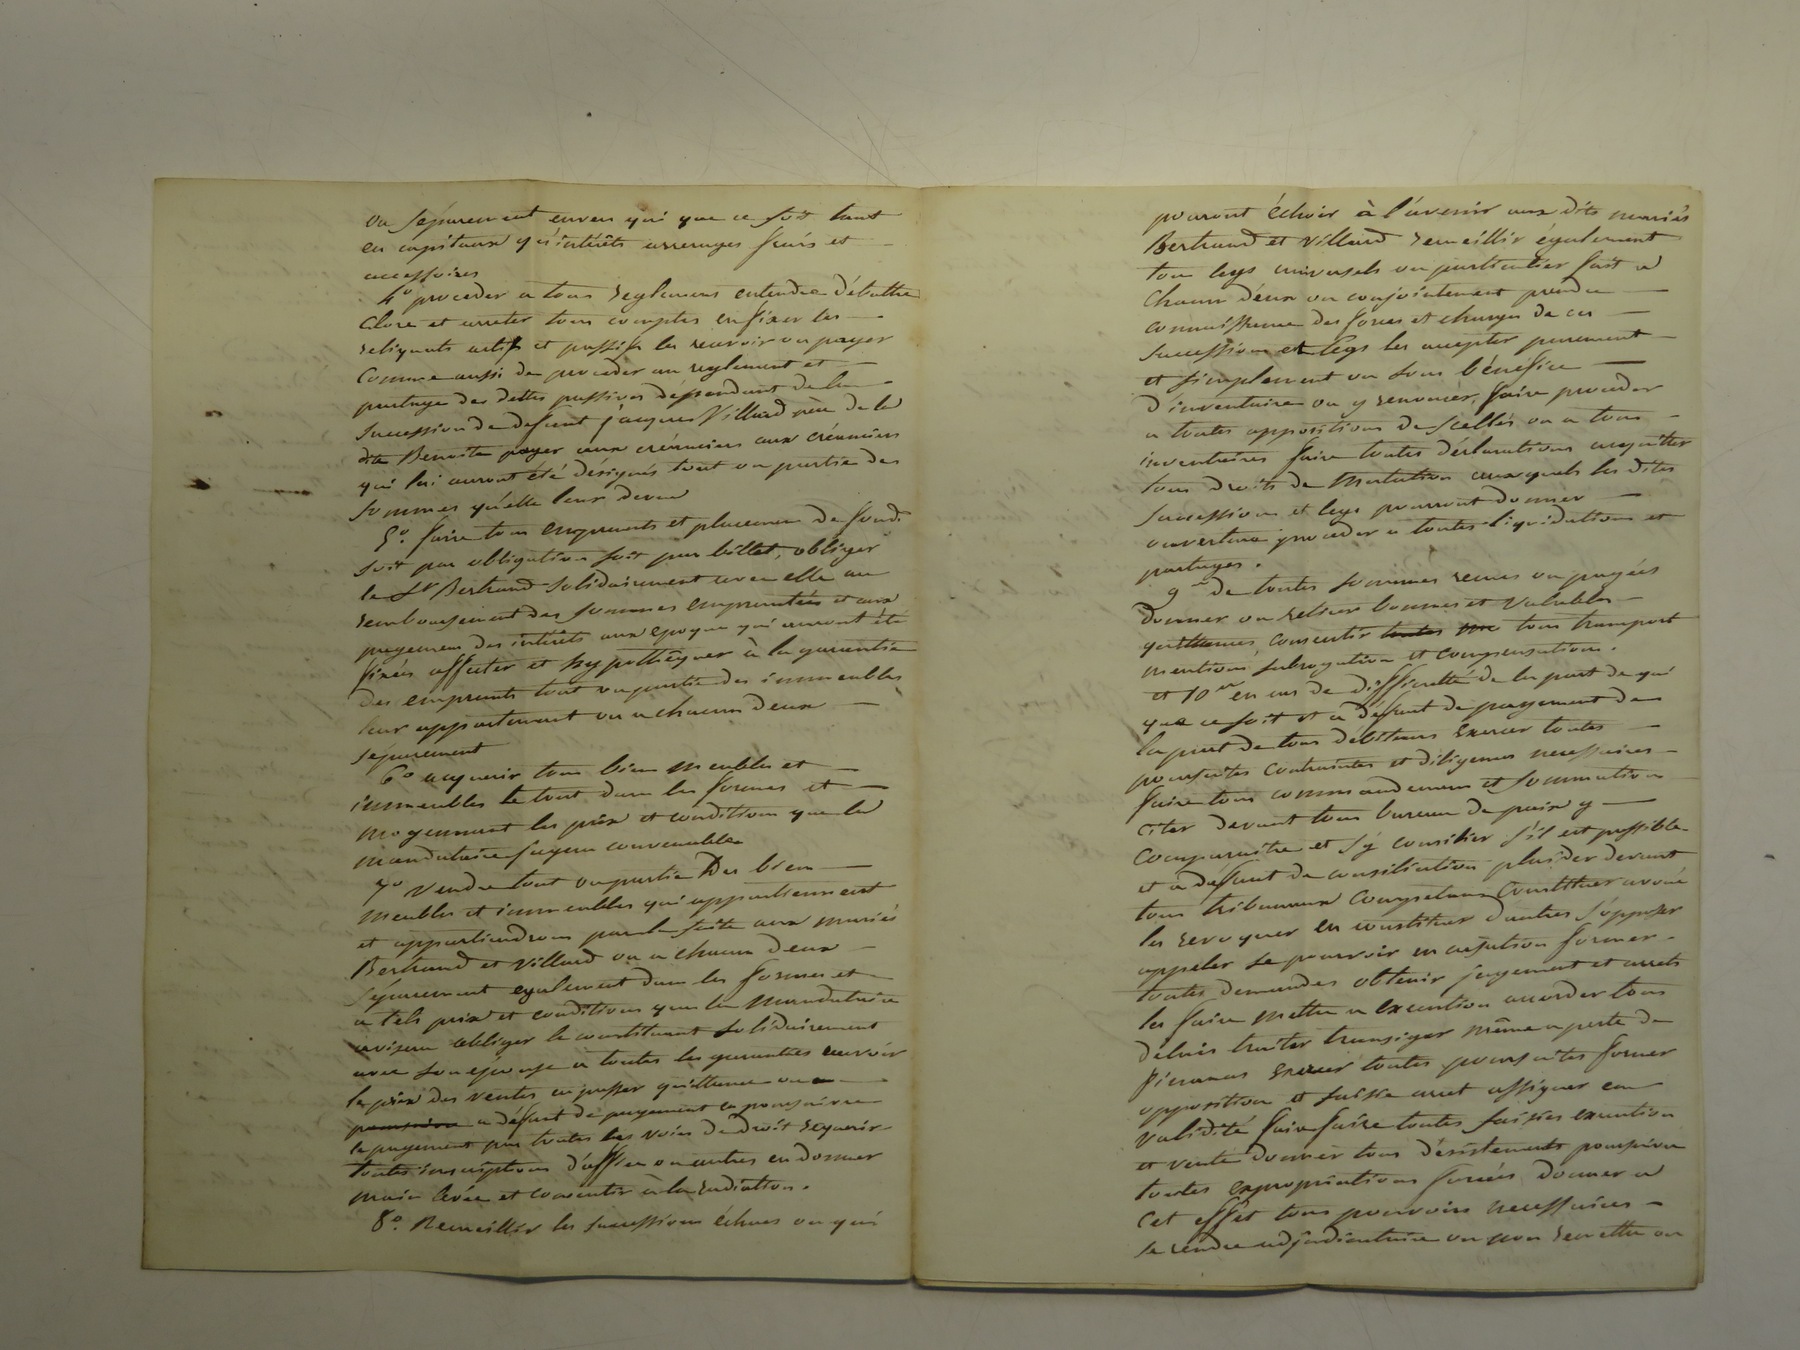 ou séparement envers qui que ce soit tant
en capitaux qu'intérêts arrerages frais et
accessoires
4° proceder a tous reglemens entendre débattre
clore et arreter tous comptes en fixer les
reliquats actifs et passifs les recevoir ou payer
comme aussi de proceder au reglement et
partage des dettes passives dépendant de la
succession de defunt jacques Villard père de la
dite Benoite payer aux créanciers aux créanciers
qui lui auront été désignés tout ou partie des
sommes qu'elle leur devra
5° faire tous emprunts et placemens de fonds
soit par obligation soit par billet, obliger
le Sr Bertrand solidairement avec elle au
remboursement des sommes empruntées et aux
payemens des intérêts aux epoques qui auront été
fixées affecter et hypothéquer à la garentie
des emprunts tout ou partie des immeubles
leur appartenant ou a chacun deux
séparement
6° acquerir tous biens meubles et
immeubles le tout dans les formes et
moyennant les prix et conditions que la
mandataire jugera convenables
7° vendre tout ou partie des biens
meubles et immeubles qui appartiennent
et appartiendrons par la suite aux mariés
Bertrand et Villard ou a chacun deux
séparement egalement dans les formes et
a tels prix et conditions que la mandataire
avisera obliger le constituant solidairement
avec son épouse a toutes les garanties recevoir
le prix des ventes en passer quittance ou
poursuivre a défaut de payement en poursuivre
le payement par toutes les voies de droit requerir
toutes inscriptions d'office ou autres en donner
main levée et consentir à la radiation.
8° Recueillir les successions échues ou qui
pouront échoir à l'avenir aux dits mariés
Bertrand et Villard recueillir également
tous legs universels ou particulier fait a
chacun d'eux ou conjointement prendre
connaissance des forces et charges de ces
succession et legs les accepter purement
et simplement ou sous bénéfice
d'inventaire ou y renoncer, faire proceder
a toutes appositions de scellés ou a tous
inventaires faire toutes déclarations acquitter
tous droits de mutation auxquels les dites
succession et legs pourront donner
ouverture proceder a toutes liquidations et
partages.
9° de toutes sommes recues ou payées
donner ou retirer bonnes et valables
quittances, consentir toutes tous transport
mention subrogation et compensation.
et 10° en cas de difficulté de la part de qui
que ce soit et a défaut de payement de
la part de tous débiteurs exercer toutes
poursuites contraintes et diligences necessaires
faire tous commandemens et sommation
citer devant tous bureau de paix y
comparaitre et s'y consilier s'il est possible
et a defaut de consiliation plaider devant
tous tribunaux competans constituer avoué
les revoquer en constituer d'autres s'opposer
appeler se pourvoir en cassation former
toutes demandes obtenir jugement et arrets
les faire mettre a execution accorder tous
délais traiter transiger même a perte de
finances exercer toutes poursuites former
opposition et saisie arret assigner en
validité faire faire toutes saisies execution
et vente donner tous désistements poursuivre
toutes expropriations forcées donner a
cet effet tous pouvoirs necessaires
se rendre adjudicataire ou non remettre ou